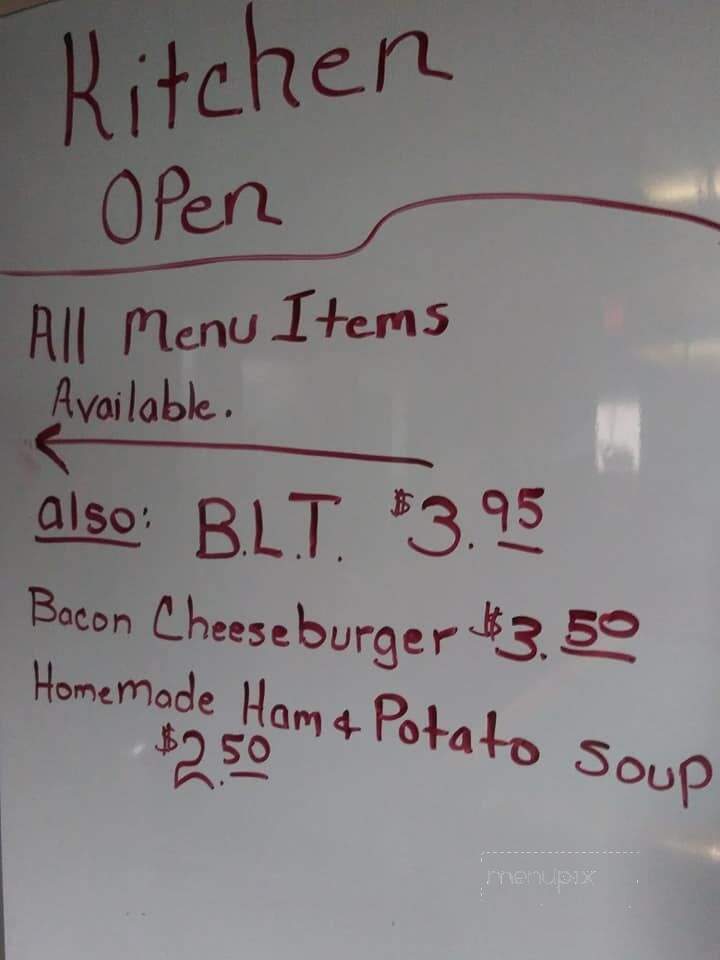 Kitchen
Open
All Menu Items
Available.
also: B.L.T. $3.95
Bacon Cheeseburger $3.50
Homemade Ham & Potato Soup
$2.50
menupix